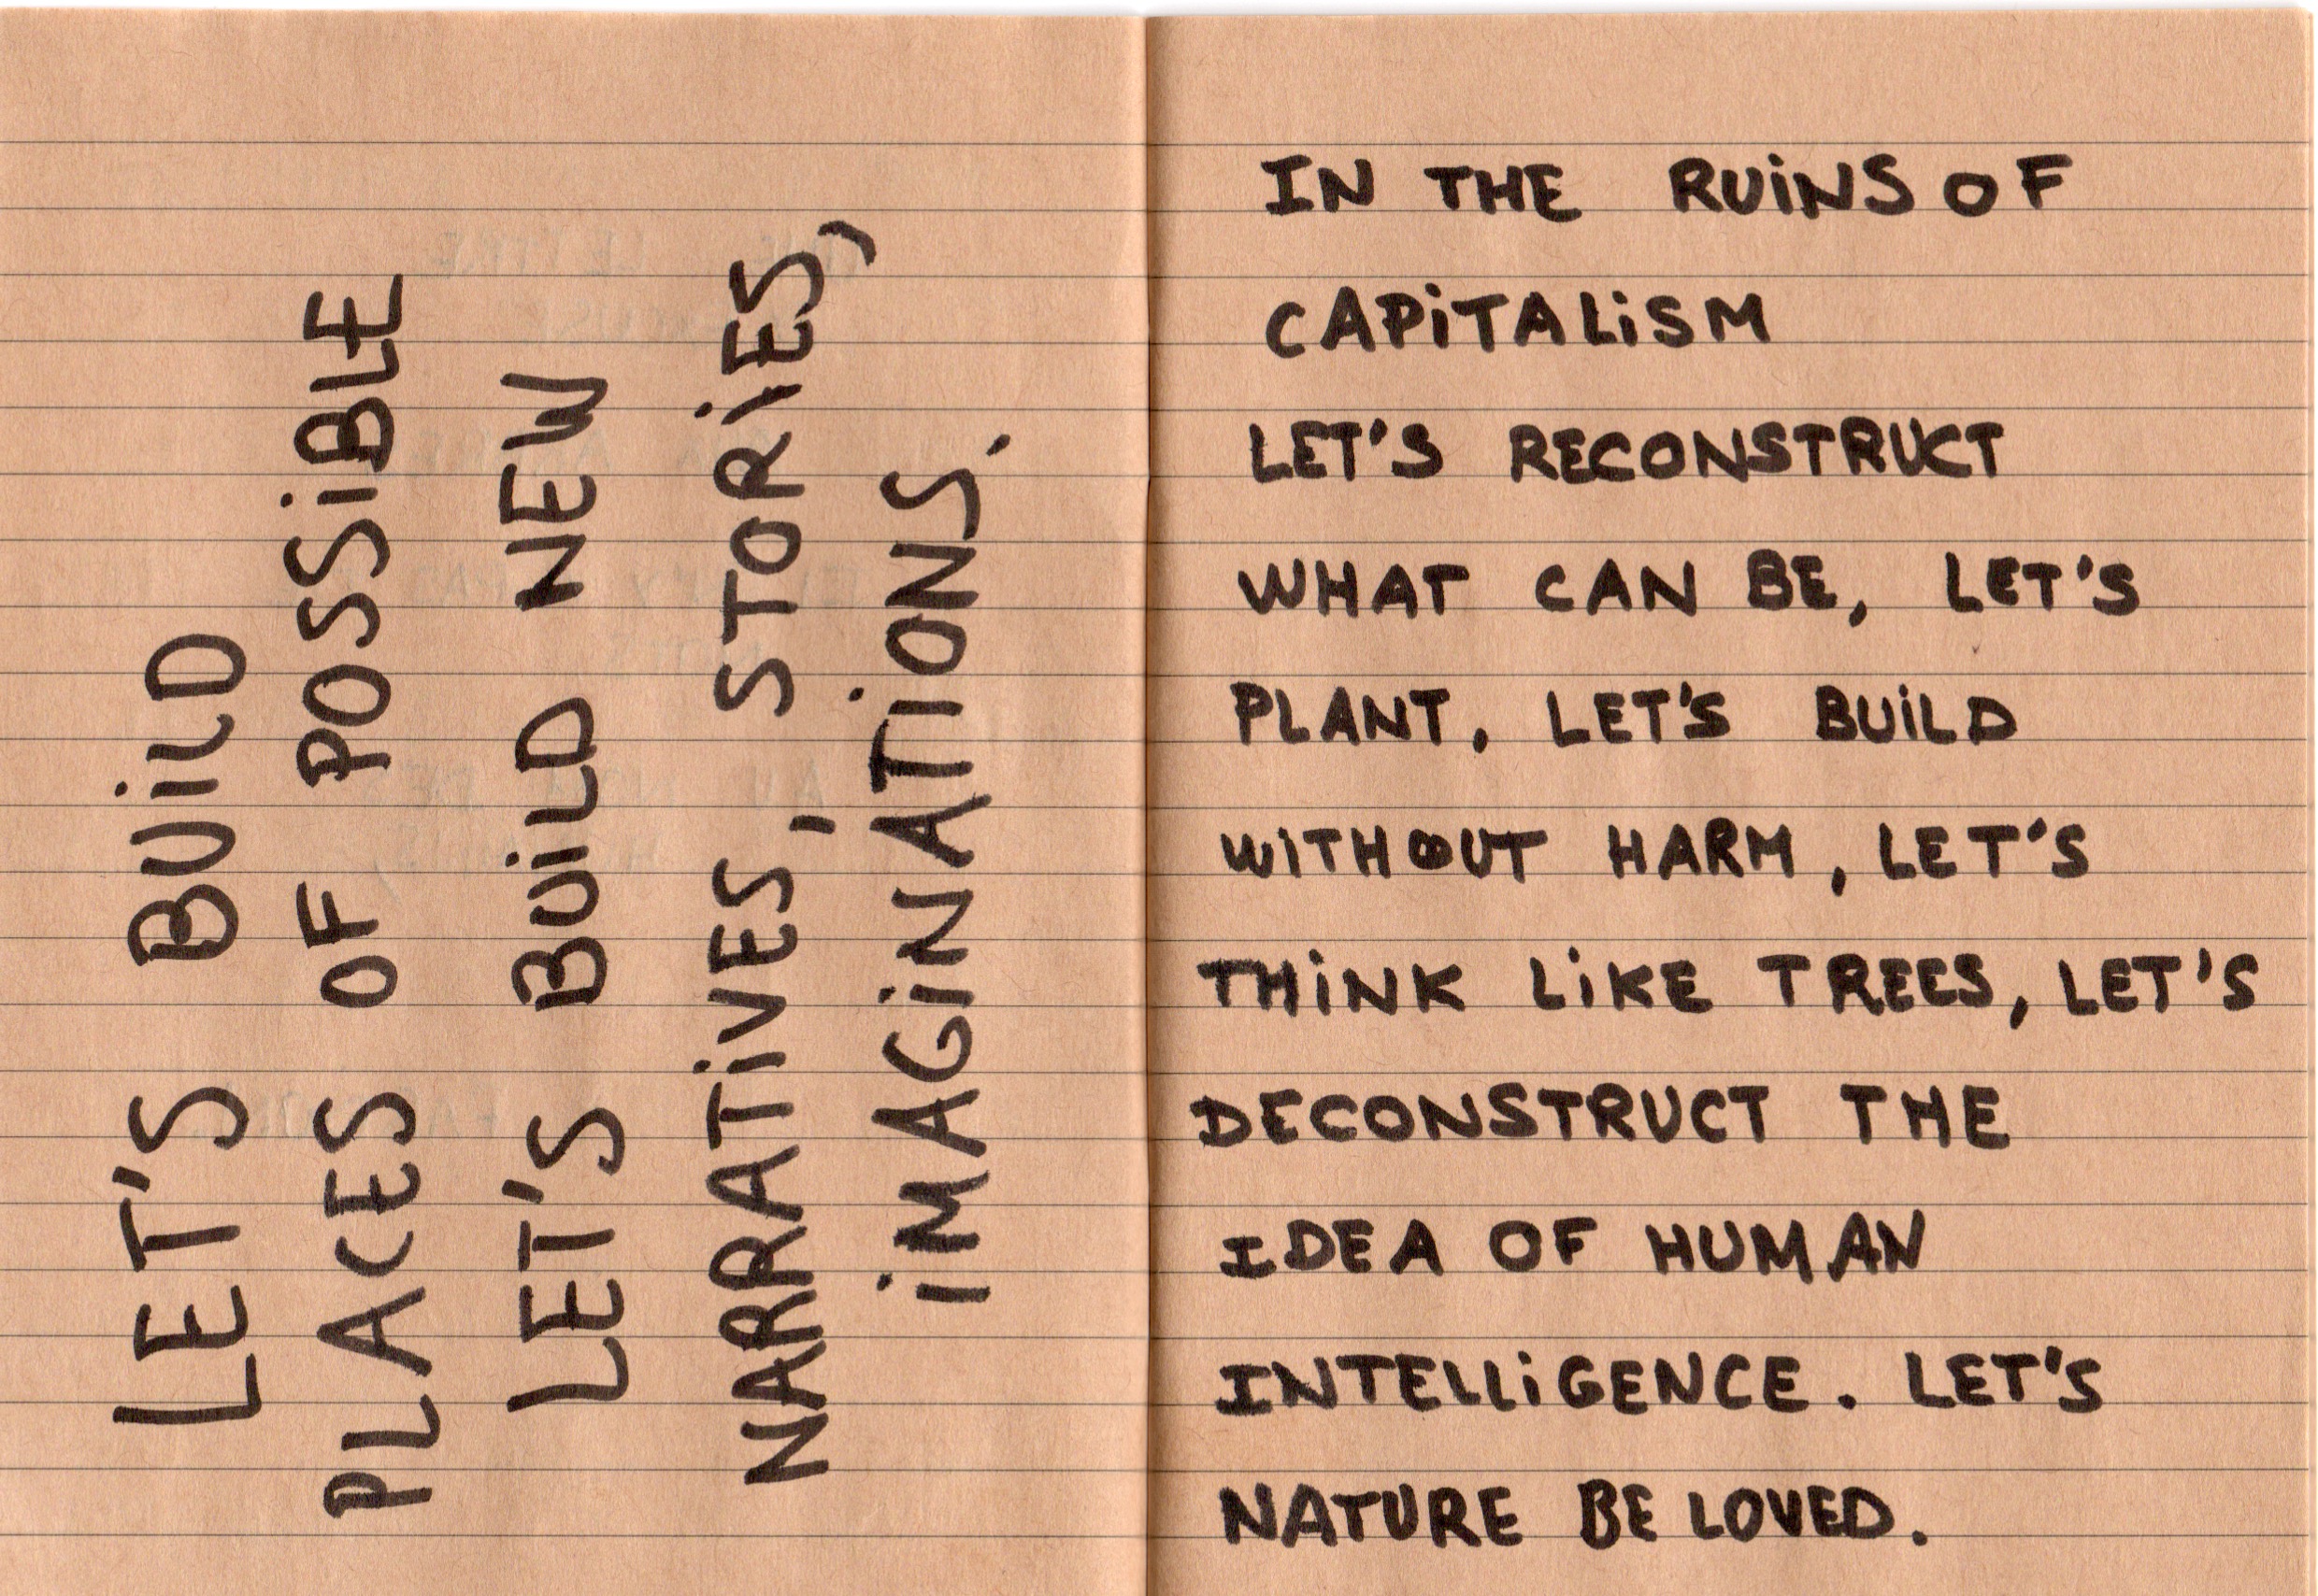 LET'S BUiLD
PLACES OF POSSiBLE
LET'S BUiLD NEW
NARRATiVES, STORiES,
iMAGiNATiONS.
IN THE RUiNS OF
CAPiTALiSM
LET'S RECONSTRUCT
WHAT CAN BE, LET'S
PLANT, LET'S BUiLD
WITHOUT HARM, LET'S
THiNK LiKE TREES, LET'S
DECONSTRUCT THE
IDEA OF HUMAN
INTELLiGENCE. LET'S
NATURE BE LOVED.